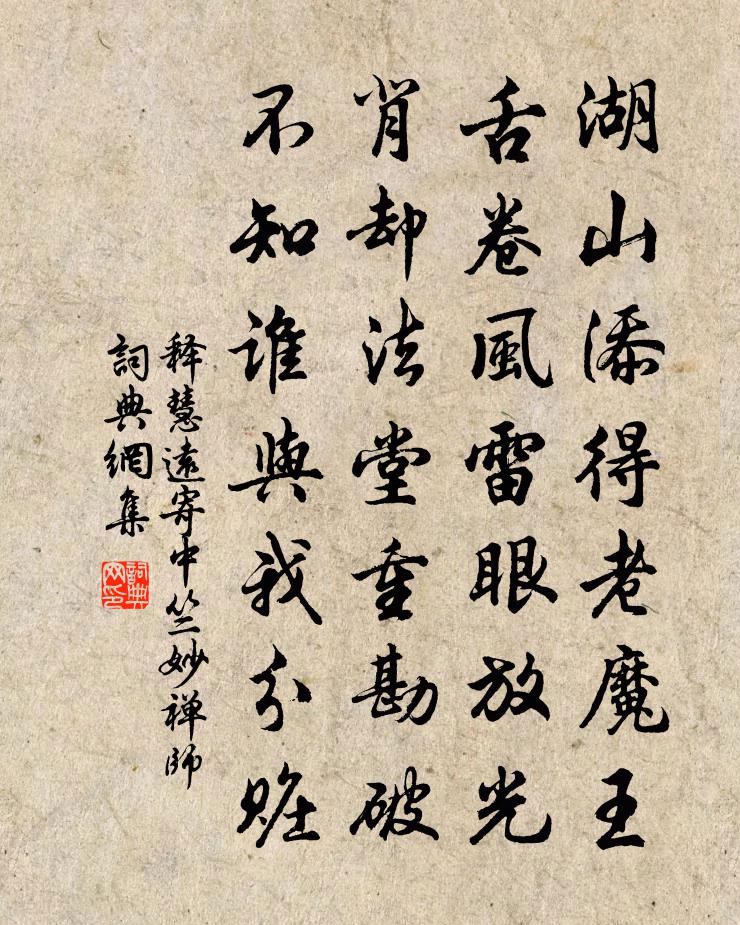 湖山添得老魔王
舌卷風雷眼放光
背却法堂重勘破
不知誰與我分賍
释慧遠寄中竺妙禅師
詞典網集
詞典网印